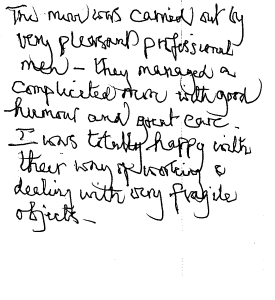 The move was carried out by
very pleasant professional
men - they managed a
complicated move with good
humour and great care.
I was totally happy with
their way of working &
dealing with very fragile
objects -